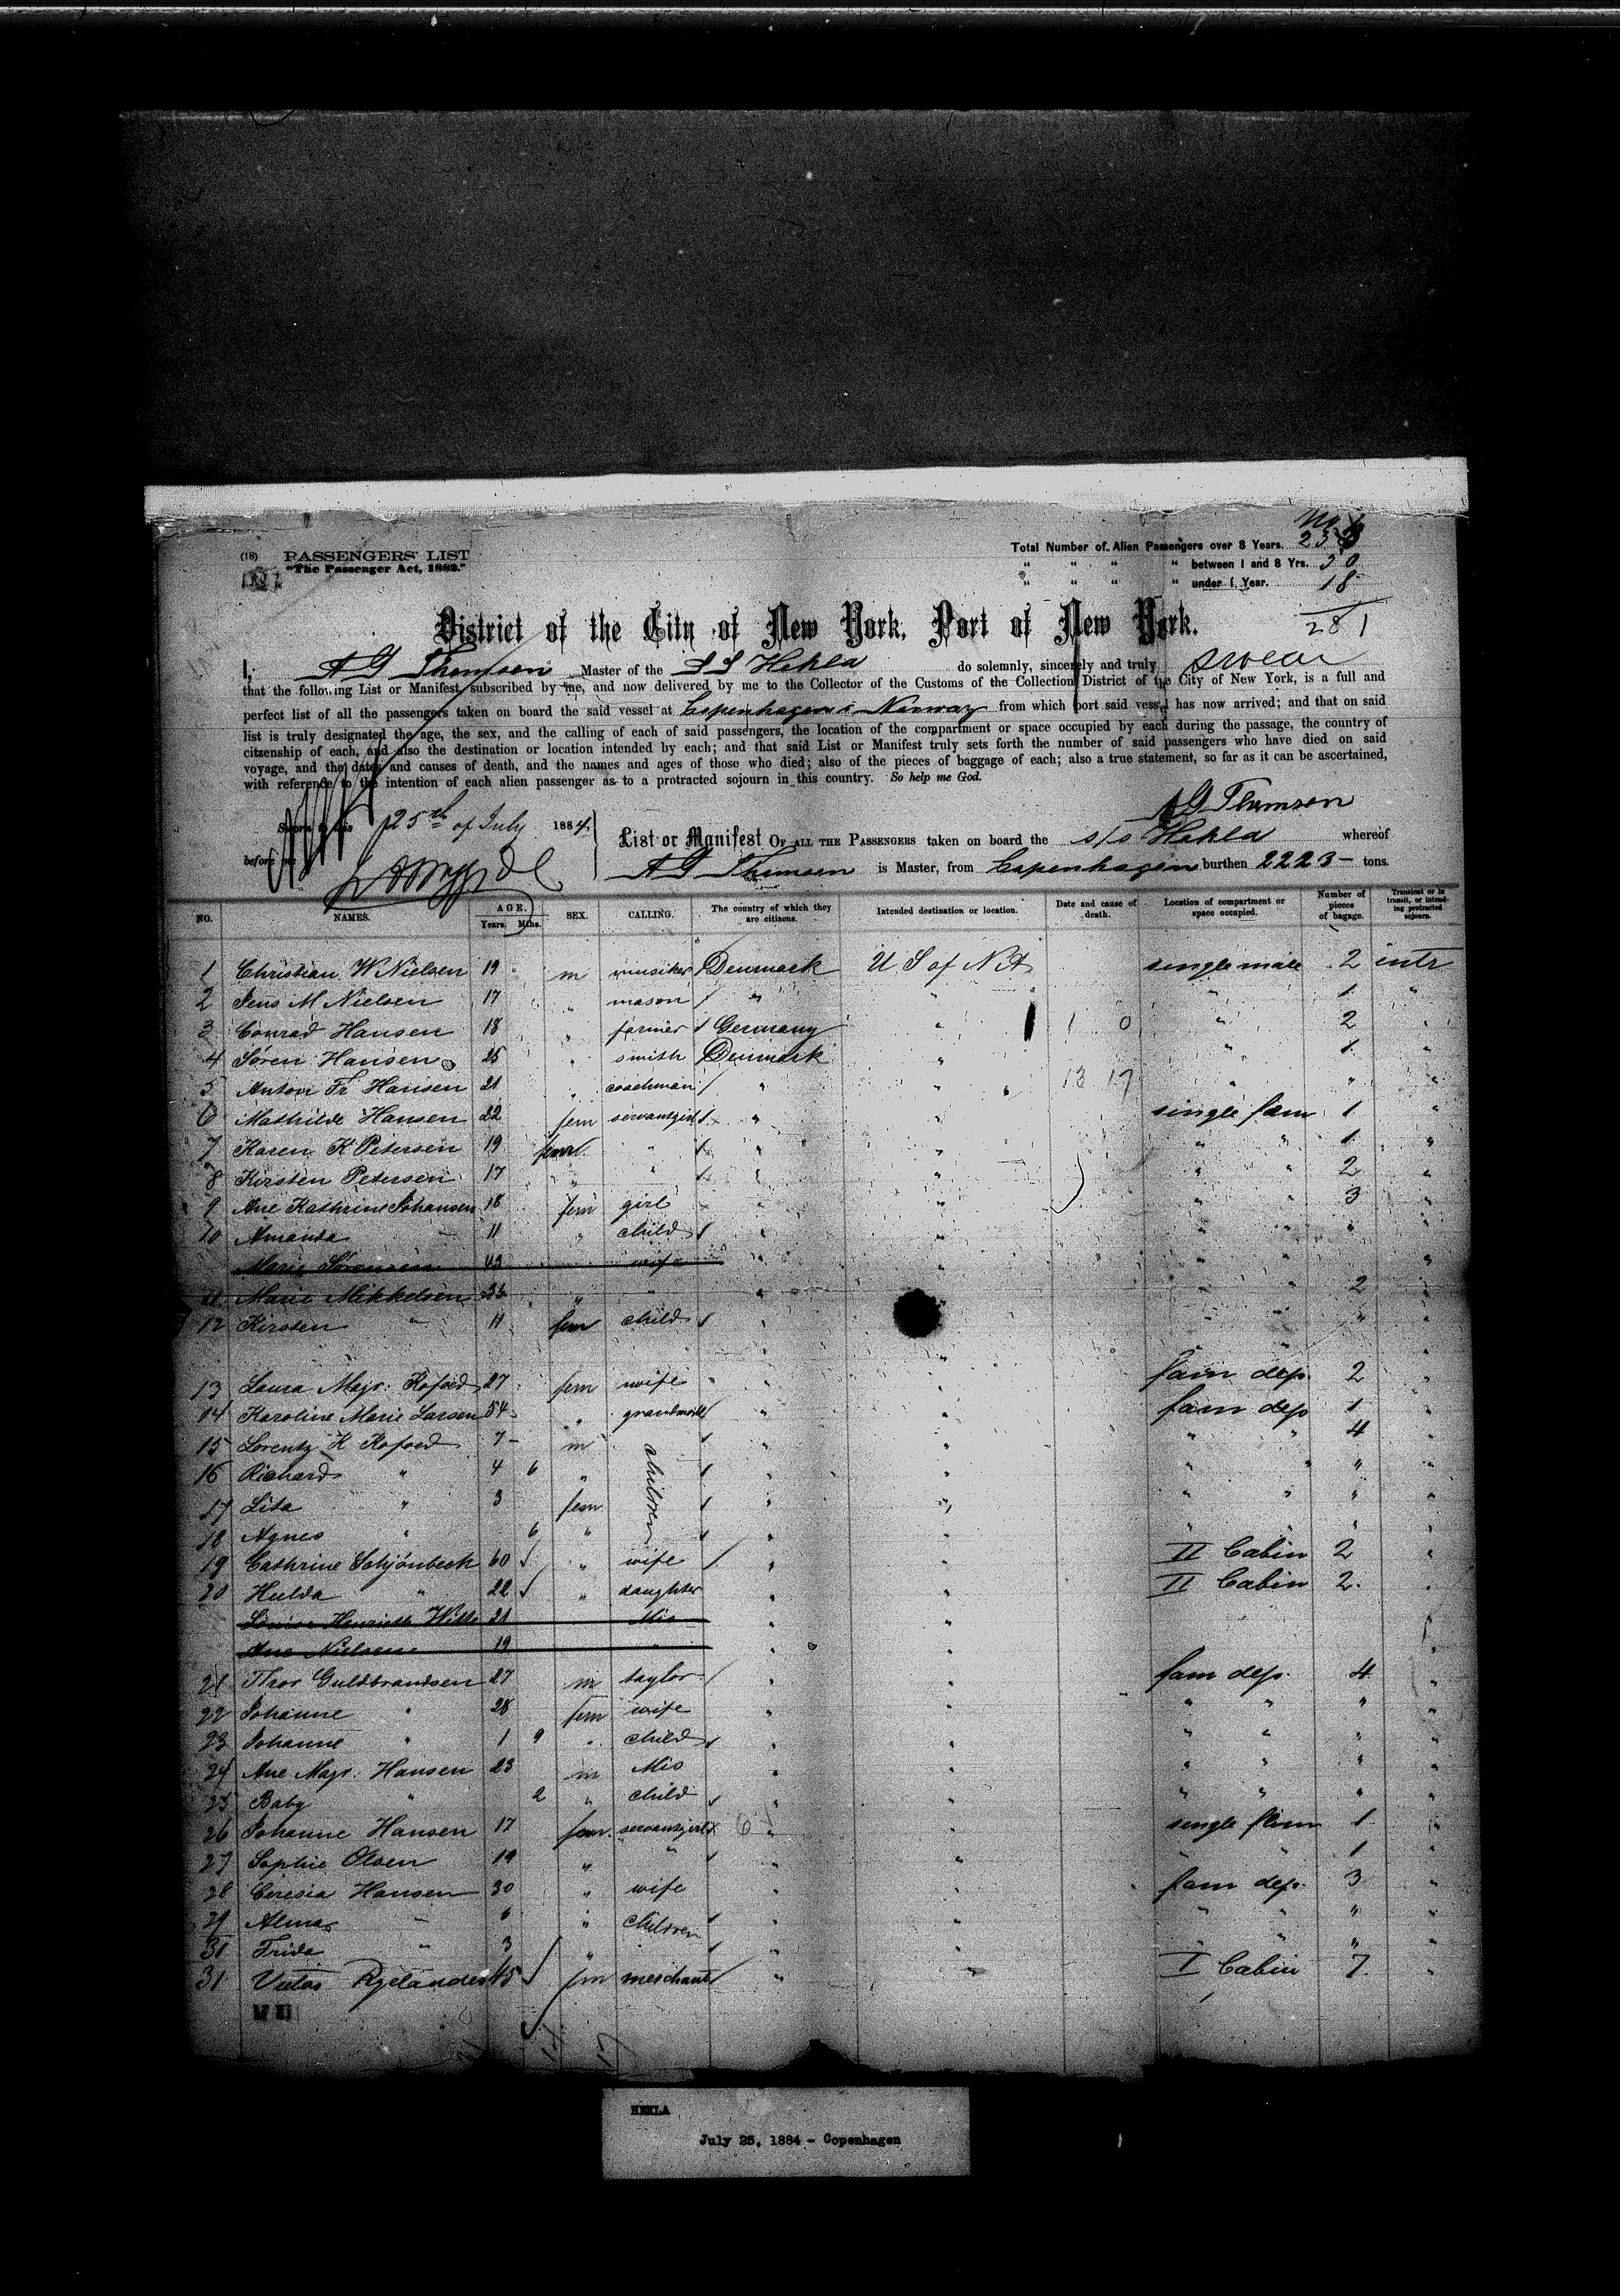 No 6
(18) PASSENGERS' LIST
"The Passenger Act, 1882."
Total Number of Alien Passengers over 8 Years. 233
" " " " between 1 and 8 Yrs. 30
" " " " under 1 Year. 18
281
District of the City of New York, Port of New York.
I, A G Thomsen Master of the S S Hekla do solemnly, sincerely and truly swear
that the following List or Manifest subscribed by me, and now delivered by me to the Collector of the Customs of the Collection District of the City of New York, is a full and
perfect list of all the passengers taken on board the said vessel at Copenhagen & Norway from which port said vessel has now arrived; and that on said
list is truly designated the age, the sex, and the calling of each of said passengers, the location of the compartment or space occupied by each during the passage, the country of
citzenship of each, and also the destination or location intended by each; and that said List or Manifest truly sets forth the number of said passengers who have died on said
voyage, and the dates and causes of death, and the names and ages of those who died; also of the pieces of baggage of each; also a true statement, so far as it can be ascertained,
with reference to the intention of each alien passenger as to a protracted sojourn in this country. So help me God.
A G Thomsen
Sworn to this 25th of July 1884
before me
List or Manifest OF ALL THE PASSENGERS taken on board the s/s Hekla whereof
A G Thomsen is Master, from Copenhagen burthen 2223 - tons.
NO. NAMES. AGE. Years. Mths. SEX. CALLING. The country of which they are citizens. Intended destination or location. Date and cause of death. Location of compartment or space occupied. Number of pieces of bagage. Transient or in transit, or intending protracted sojourn.
1 Christian W Nielsen 19 m musiker Denmark U S of NA single male 2 intr
2 Jens M Nielsen 17 " mason " " " 1 "
3 Conrad Hansen 18 " farmer Germany " 1 0 " 2 "
4 Søren Hansen 25 " smith Denmark " " 1 "
5 Anton Fr Hansen 21 " coachman " " 13 17 " " "
6 Mathilde Hansen 22 fem servantgirl " " single fem 1 "
7 Karen K Petersen 19 " " " " " 1 "
8 Kirsten Petersen 17 " " " " " " 2 "
9 Ane Kathrine Johansen 18 fem girl " " " " 3 "
10 Amanda - 11 " child " " " " " "
Marie Sørensen 43 wife " " " " "
11 Marie Mikkelsen 33 " " " " " 2
12 Kirsten " 11 fem child " " " "
13 Laura Magr: Kofoed 27 fem wife " " fam dep. 2 "
14 Karoline Marie Larsen 54 " " " fam dep 1 "
15 Lorentz K Kofoed 7 - m children " " " " 4 "
16 Richard " 4 6 " " " " " " "
17 Lita " 3 fem " " " " " "
18 Agnes " 6 " " " " " " "
19 Cathrine Schjönbeck 60 " wife " " II Cabin 2 "
20 Hulda " 22 " daughter " " II Cabin 2. "
Louise Henriette Witte 21 Mis " "
Ane Nielsen 19 " " " "
21 Thor Guldbrandsen 27 m taylor " " fam dep. 4 "
22 Johanne " 28 fem wife " " " " " "
23 Johanne " 1 9 " child " " " " " "
24 Ane Magr. Hansen 23 m Mis " " " " " "
25 Baby " 2 " child " " " " " "
26 Johanne Hansen 17 fem. servantgirl 6 " " single 1 "
27 Sophie Olsen 19 " " " " " " 1 "
28 Ceresia Hansen 30 " wife " " fam dep. 3 "
29 Alma - 6 " children " " " " " "
31 Frida " 3 " " " " " " "
31 Rjelander 45 fm merchant " I Cabin 7. "
HEKLA
July 25, 1884 - Copenhagen